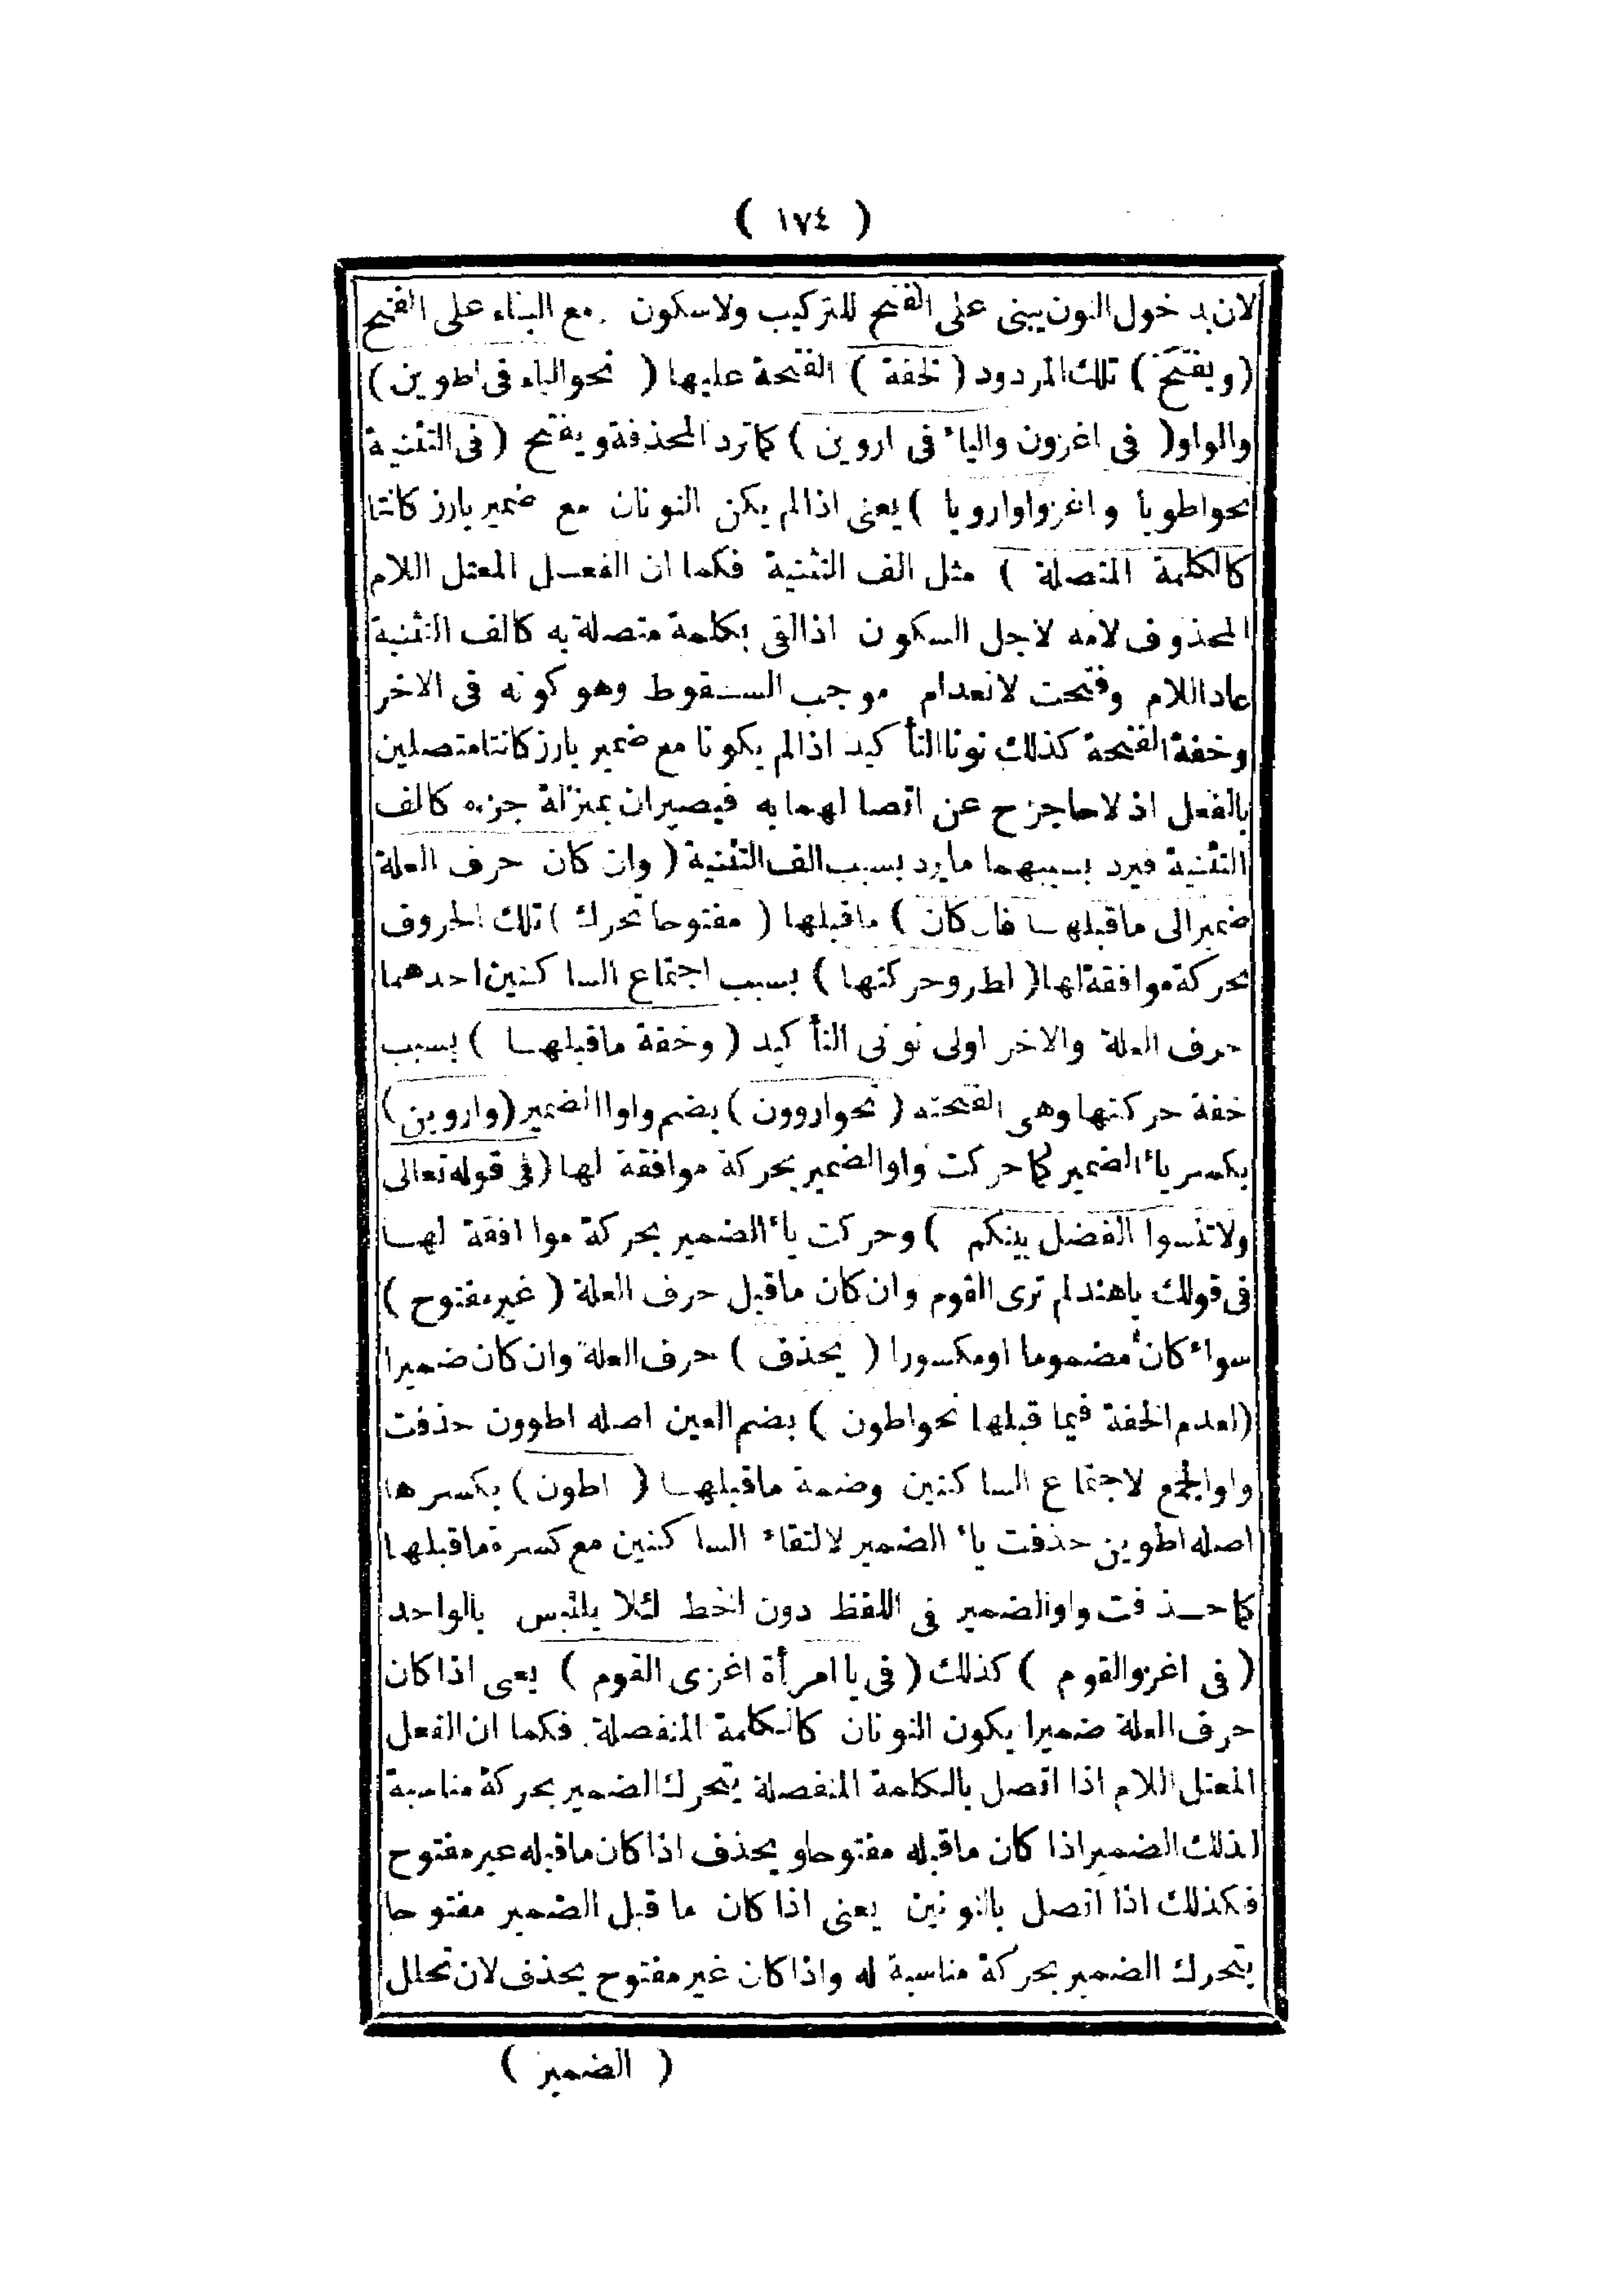 ( ١٧٤ )
لان بدخول النون يبنى على الفتح للتركيب ولا سكون مع البناء على الفتح
(ويفتح) تلك المردود ( لخفة ) الفتحة عليها ( نحو الياء فى اطوين )
والواو( فى اغزون والياء فى اروين ) كما ترد المحذفة ويفتح ( فى التثنية
نحو اطويا واغزوا وارويا ) يعنى اذا لم يكن النونان مع ضمير بارز كانتا
كالكلمة المتصلة ) مثل الف التثنية فكما ان الفعل المعتل اللام
المحذوف لامه لاجل السكون اذا القى بكلمة متصلة به كالف التثنية
عاد اللام وفتحت لانعدام موجب السقوط وهو كونه فى الاخر
وخفة الفتحة كذلك نونا التأكيد اذا لم يكونا مع ضمير بارز كانتا متصلين
بالفعل اذ لا حاجز ح عن اتصالهما به فيصيران بمنزلة جزء كالف
التثنية فيرد بسببهما ما يرد بسبب الف التثنية ( وان كان حرف العلة
ضمير الى ما قبلها فان كان ) ما قبلها ( مفتوحا تحرك ) تلك الحروف
بحركة موافقة لها ( لطرو حركتها ) بسبب اجتماع الساكنين احدهما
حرف العلة والاخر اولى نونى التأكيد ( وخفة ما قبلها ) بسبب
خفة حركتها وهى الفتحته ( نحو اروون ) بضم واوا الضمير (واروين)
بكسر ياء الضمير كما حركت واو الضمير بحركة موافقة لها (فى قوله تعالى
ولا تنسوا الفضل بينكم ) وحركت ياء الضمير بحركة موا افقة لها
فى قولك ياهند لم ترى القوم وان كان ما قبل حرف العلة ( غير مفتوح )
سواء كان مضموما او مكسورا ( يحذف ) حرف العلة وان كان ضميرا
(لعدم الخفة فيما قبلها نحو اطون ) بضم العين اصله اطوون حذفت
واو الجمع لاجتماع الساكنين وضمة ما قبلها ( اطون ) بكسرها
اصله اطوين حذفت ياء الضمير لالتقاء الساكنين مع كسرة ما قبلها
كما حذفت واو الضمير فى اللفظ دون الخط لئلا يلتبس بالواحد
( فى اغزو القوم ) كذلك ( فى يا امرأة اغزى القوم ) يعى اذا كان
حرف العلة ضميرا يكون النونان كالكلمة المنفصلة فكما ان الفعل
المعتل اللام اذا اتصل بالكلمة المنفصلة يتحرك الضمير بحركة مناسبة
لذلك الضمير اذا كان ما قبله مفتوحا ويحذف اذا كان ما قبله غير مفتوح
فكذلك اذا اتصل بالنونين يعنى اذا كان ما قبل الضمير مفتوحا
يتحرك الضمير بحركة مناسبة له واذا كان غير مفتوح يحذف لان تخلل
( الضمير )